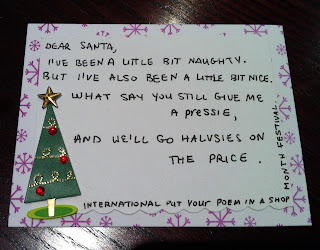 DEAR SANTA,
I'VE BEEN A LITTLE BIT NAUGHTY.
BUT I'VE ALSO BEEN A LITTLE BIT NICE.
WHAT SAY YOU STILL GIVE ME
A PRESSIE,
AND WE'LL GO HALVSIES ON
THE PRICE.
INTERNATIONAL PUT YOUR POEM IN A SHOP
MONTH FESTIVAL